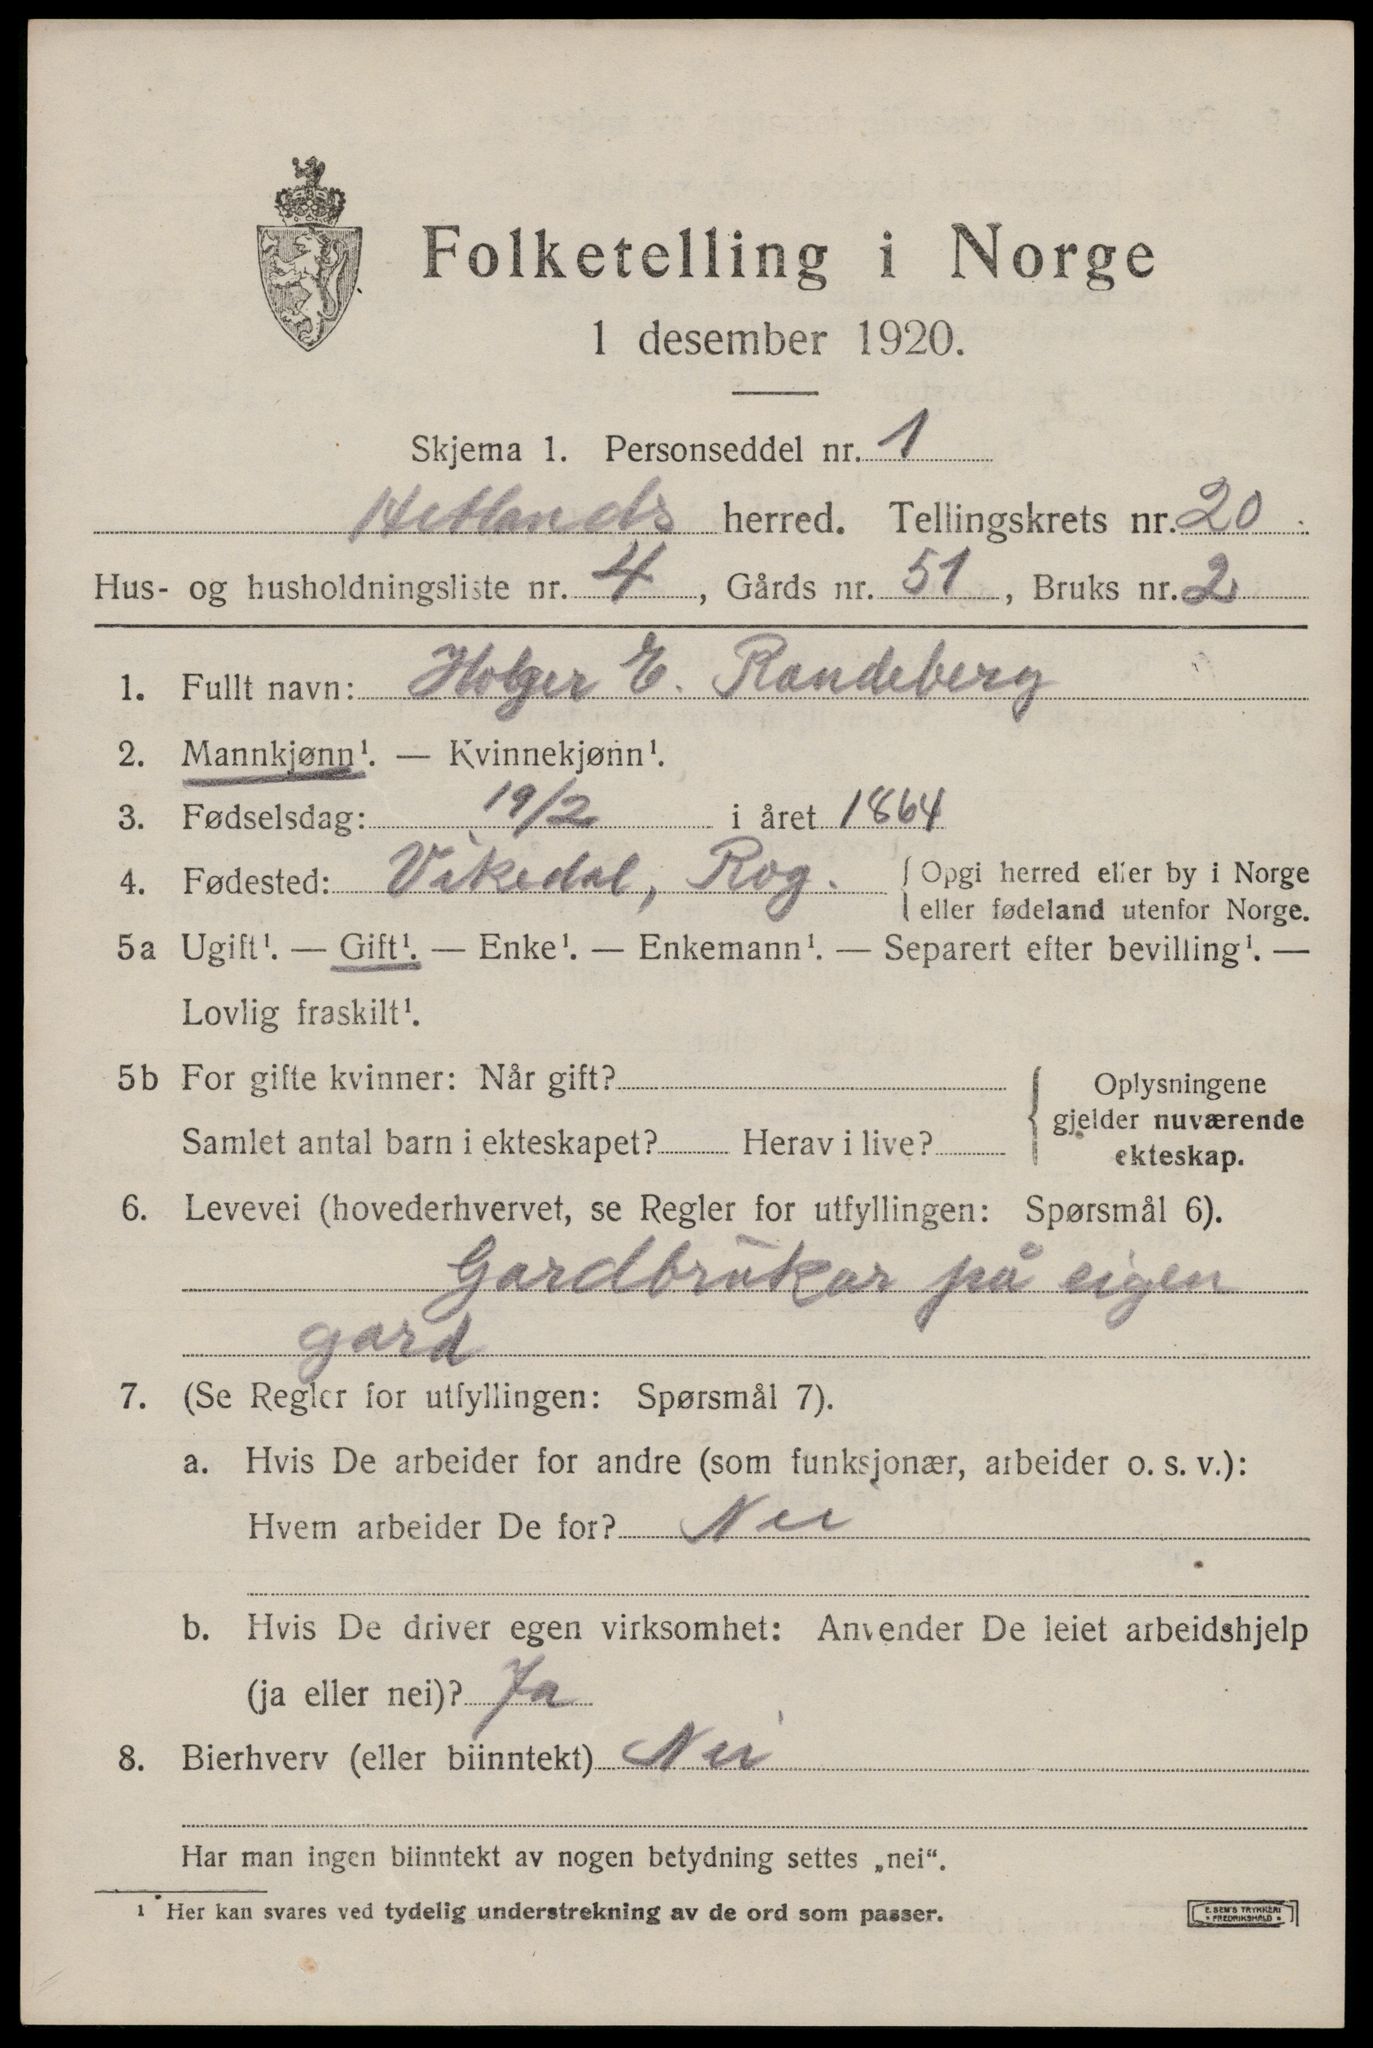 Folketelling i Norge
1 desember 1920.
Skjema 1. Personseddel nr. 1
Hetlands herred. Tellingskrets nr. 20
Hus- og husholdningsliste nr. 4, Gårds nr. 51, Bruks nr. 2
1. Fullt navn: Holger E. Randeberg
2. Mannkjønn¹. — Kvinnekjønn¹.
3. Fødselsdag: 19/2 i året 1864
4. Fødested: Vikedal, Rog. { Opgi herred eller by i Norge
eller fødeland utenfor Norge.
5a Ugift¹. — Gift¹. — Enke¹. — Enkemann¹. — Separert efter bevilling¹. —
Lovlig fraskilt¹.
5b For gifte kvinner: Når gift?
Samlet antal barn i ekteskapet? Herav i live?
{ Oplysningene
gjelder nuværende
ekteskap.
6. Levevei (hovederhvervet, se Regler for utfyllingen: Spørsmål 6).
Gardbrukar på eigen
gard
7. (Se Regler for utfyllingen: Spørsmål 7).
a. Hvis De arbeider for andre (som funksjonær, arbeider o. s. v.):
Hvem arbeider De for? Nei
b. Hvis De driver egen virksomhet: Anvender De leiet arbeidshjelp
(ja eller nei)? Ja
8. Bierhverv (eller biinntekt) Nei
Har man ingen biinntekt av nogen betydning settes „nei“.
¹ Her kan svares ved tydelig understrekning av de ord som passer.
E. SEM'S TRYKKERI
• FREDRIKSHALD •